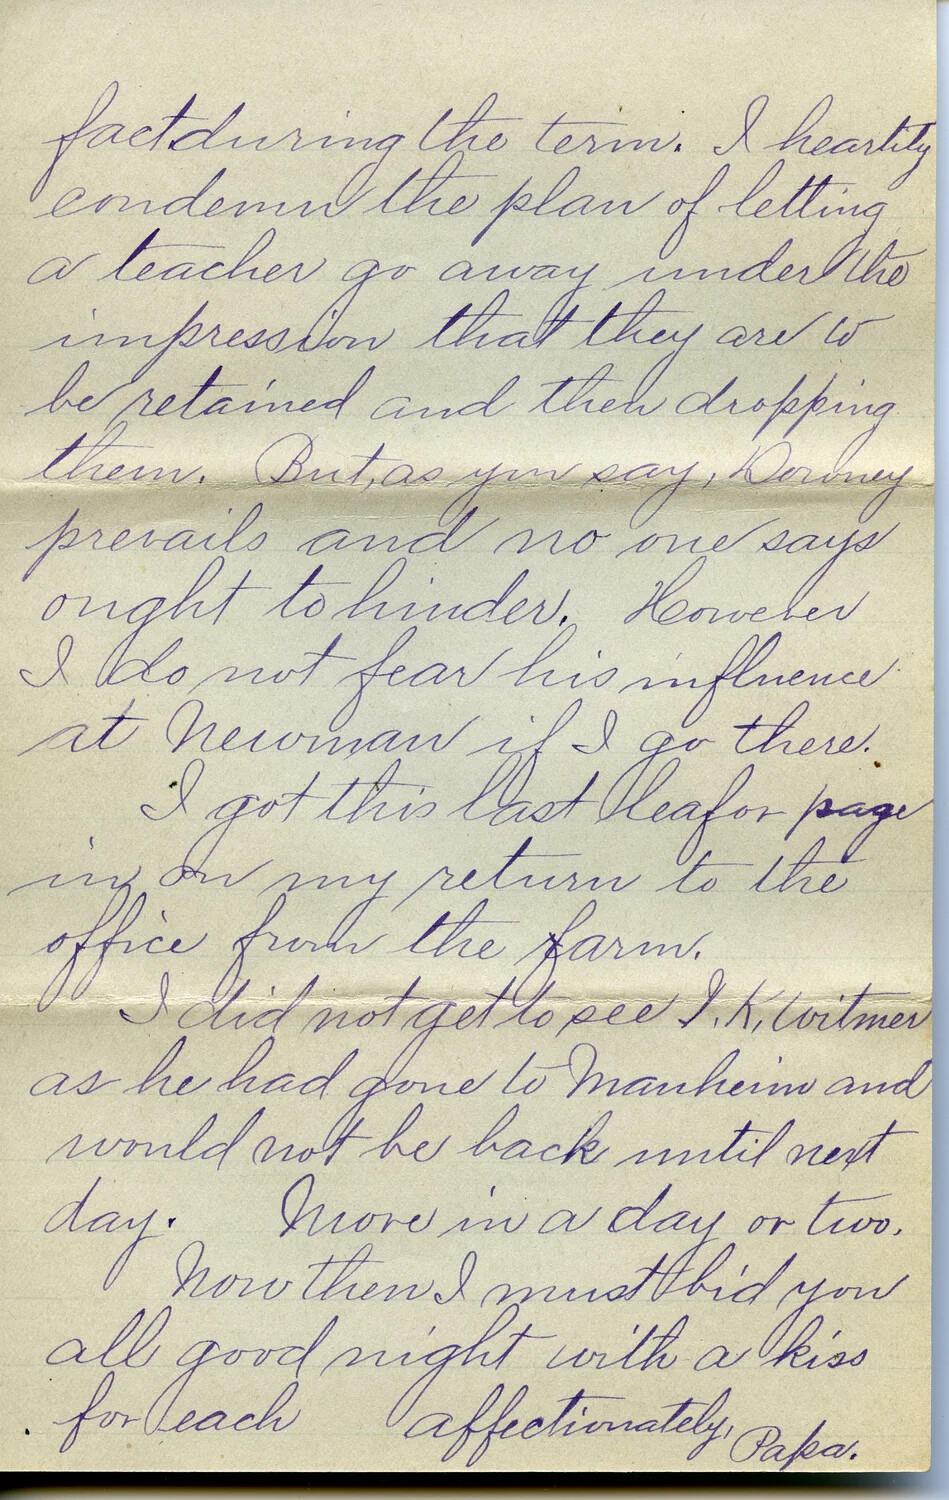 fact during the term. I heartily
condemn the plan of letting
a teacher go away under the
impression that they are to
be retained and then dropping
them. But, as you say, Downey
prevails and no one says
ought to hinder. However
I do not fear his influence
at Newman if I go there.
I got this last leaf or page
in on my return to the
office from the farm.
I did not get to see I. K. Witmer
as he had gone to Manheim and
would not be back until next
day. More in a day or two.
Now then I must bid you
all good night with a kiss
for each affectionately,
Papa.